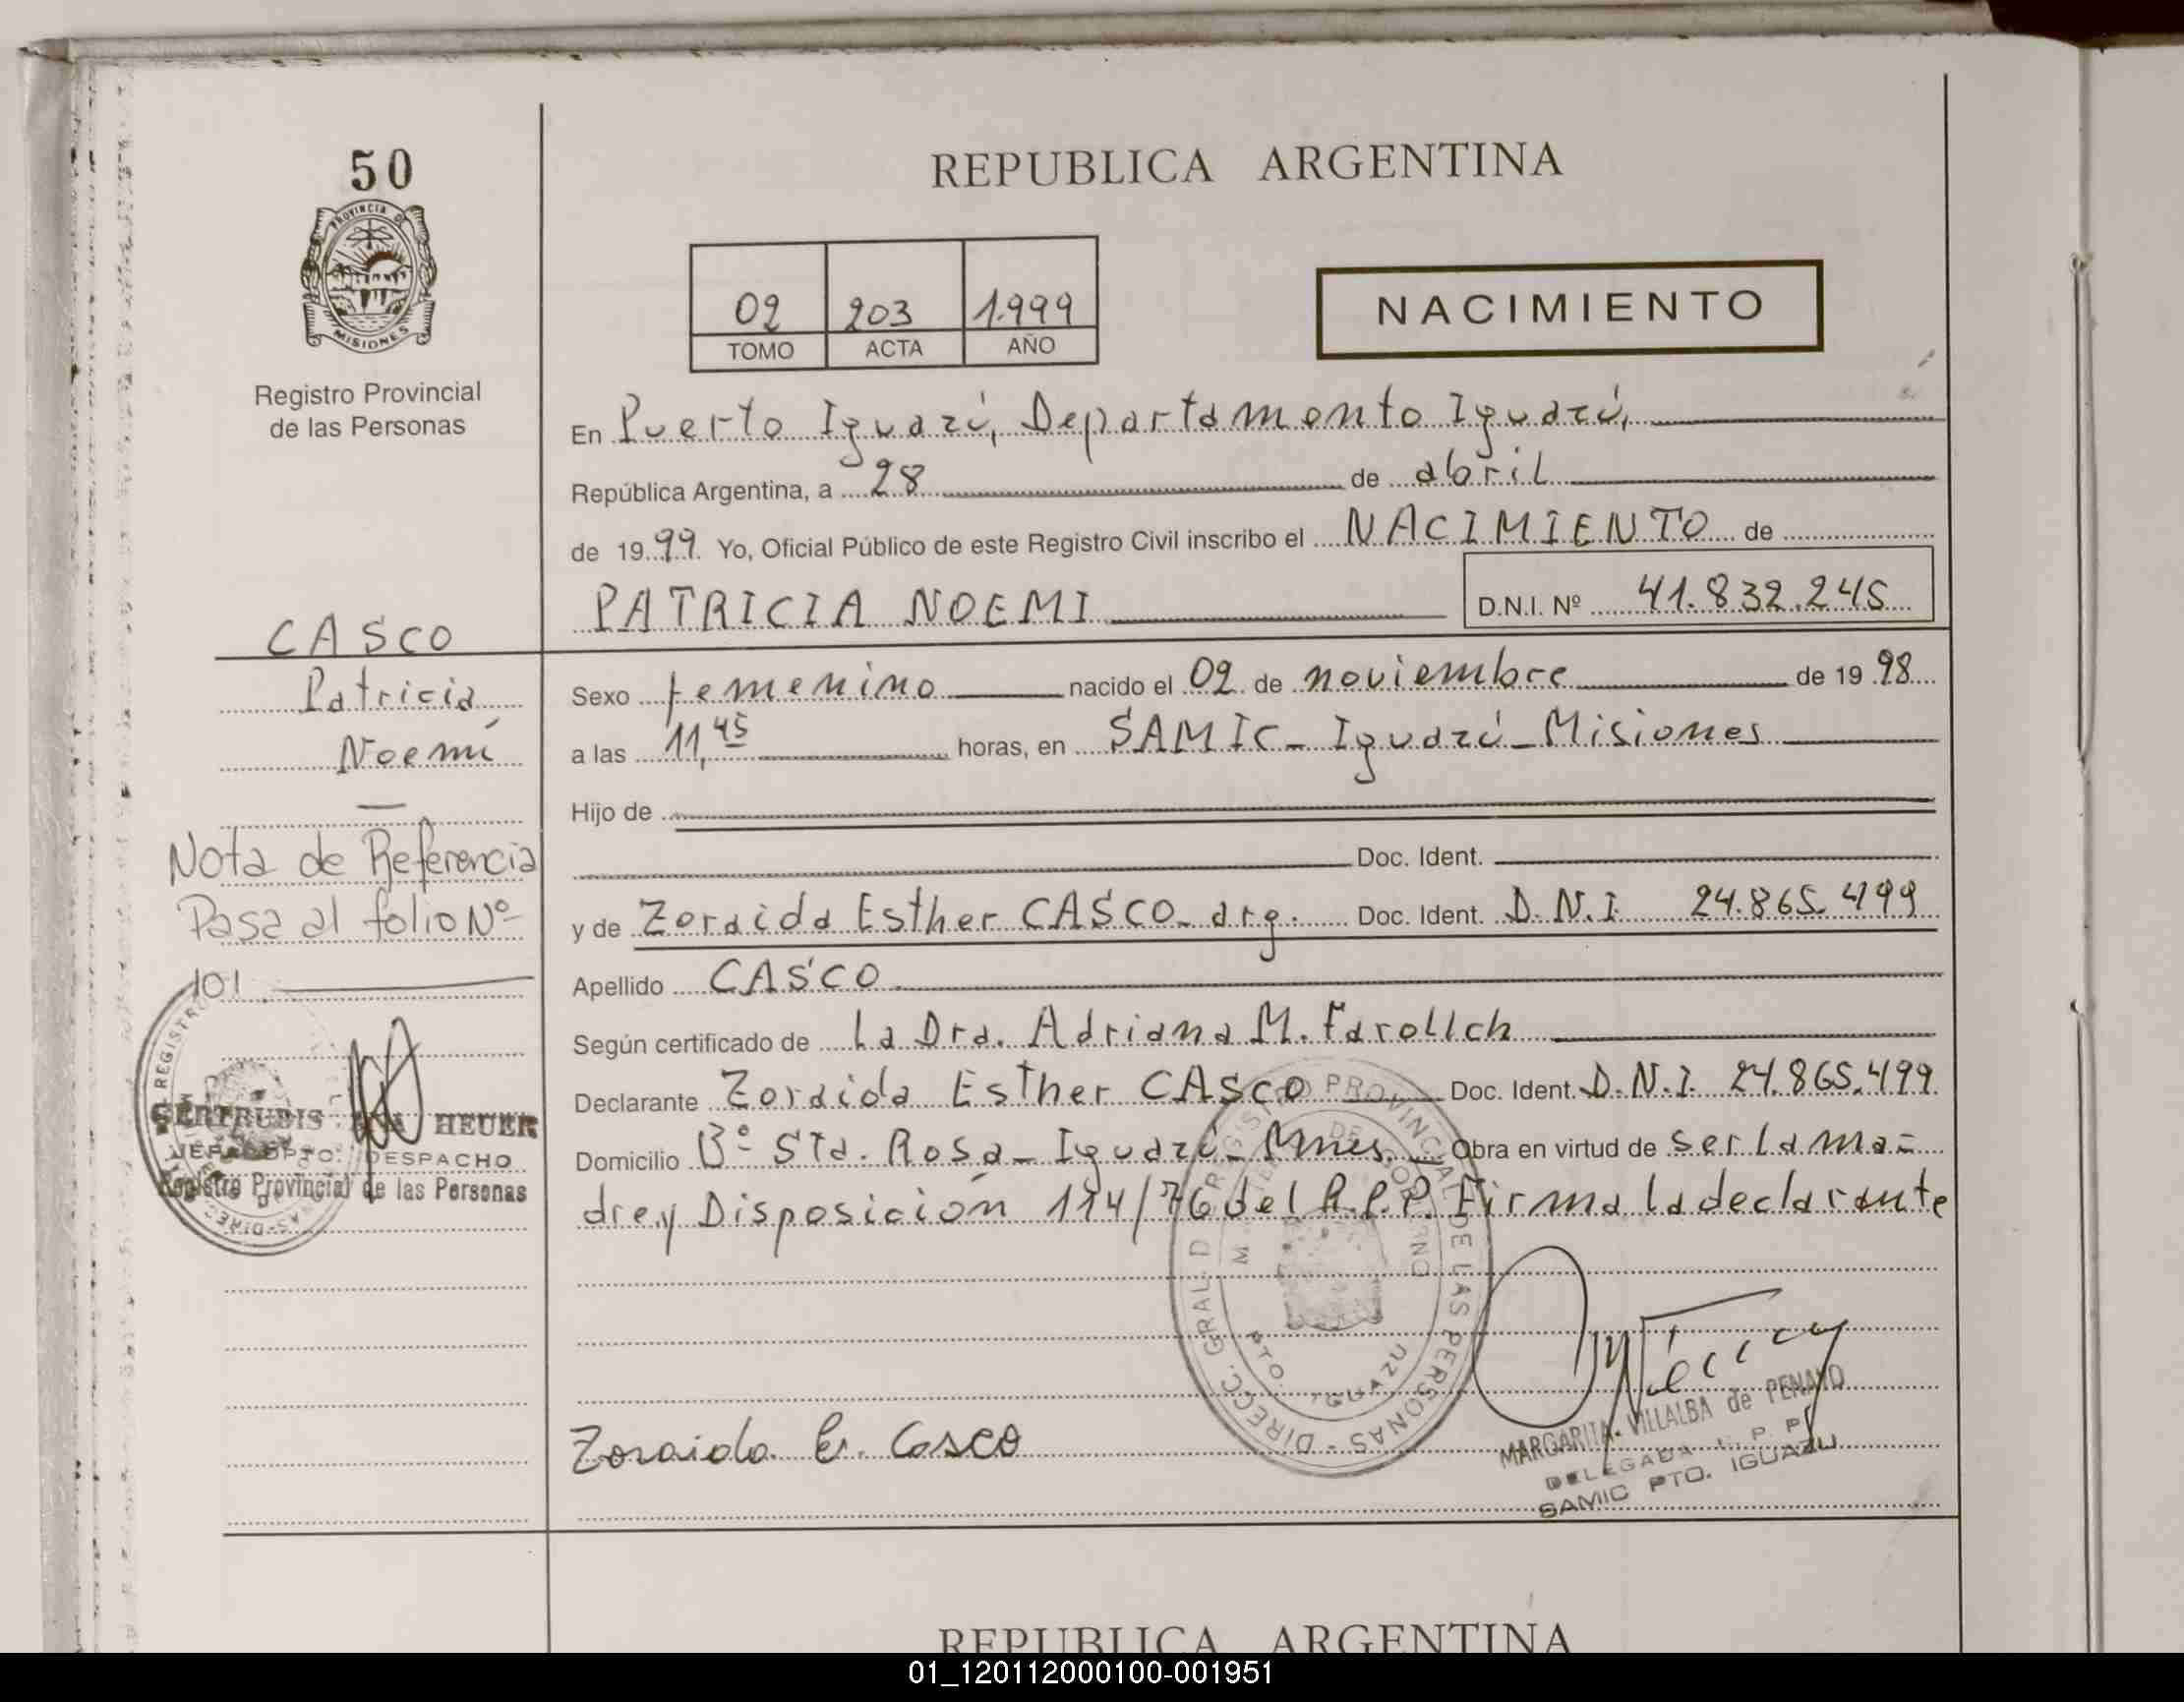 50
PROVINCIA DE
MISIONES
Registro Provincial
de las Personas
CASCO
Patricia
Noemí
Nota de Referencia
Pasa al folio Nº
101
GERTRUDIS ANA HEUER
JEFA DPTO. DESPACHO
Registro Provincial de las Personas
REPUBLICA ARGENTINA
02 203 1.999
TOMO ACTA AÑO
NACIMIENTO
En Puerto Iguazú, Departamento Iguazú,
República Argentina, a 28 de abril
de 1999 Yo, Oficial Público de este Registro Civil inscribo el NACIMIENTO de
PATRICIA NOEMI D.N.I. Nº 41.832.245
Sexo femenino nacido el 02 de noviembre de 1998
a las 11,45 horas, en SAMIC - Iguazú - Misiones
Hijo de
Doc. Ident.
y de Zoraida Esther CASCO - arg. Doc. Ident. D.N.I 24.865.499
Apellido CASCO
Según certificado de La Dra. Adriana M. Farollch
Declarante Zoraida Esther CASCO Doc. Ident. D.N.I. 24.865.499
Domicilio Bº Sta. Rosa - Iguazú - Mnes. - Obra en virtud de ser la ma=
dre y Disposición 114/76 del R.P.P. Firma la declarante
DIRECC. GRAL. D REGISTRO PROVINCIAL DE LAS PERSONAS
PTO. IGUAZU
Zoraida E. Casco
MARGARITA VILLALBA de PENAYO
DELEGADA R. P. P.
SAMIC PTO. IGUAZU
REPUBLICA ARGENTINA
01_120112000100-001951